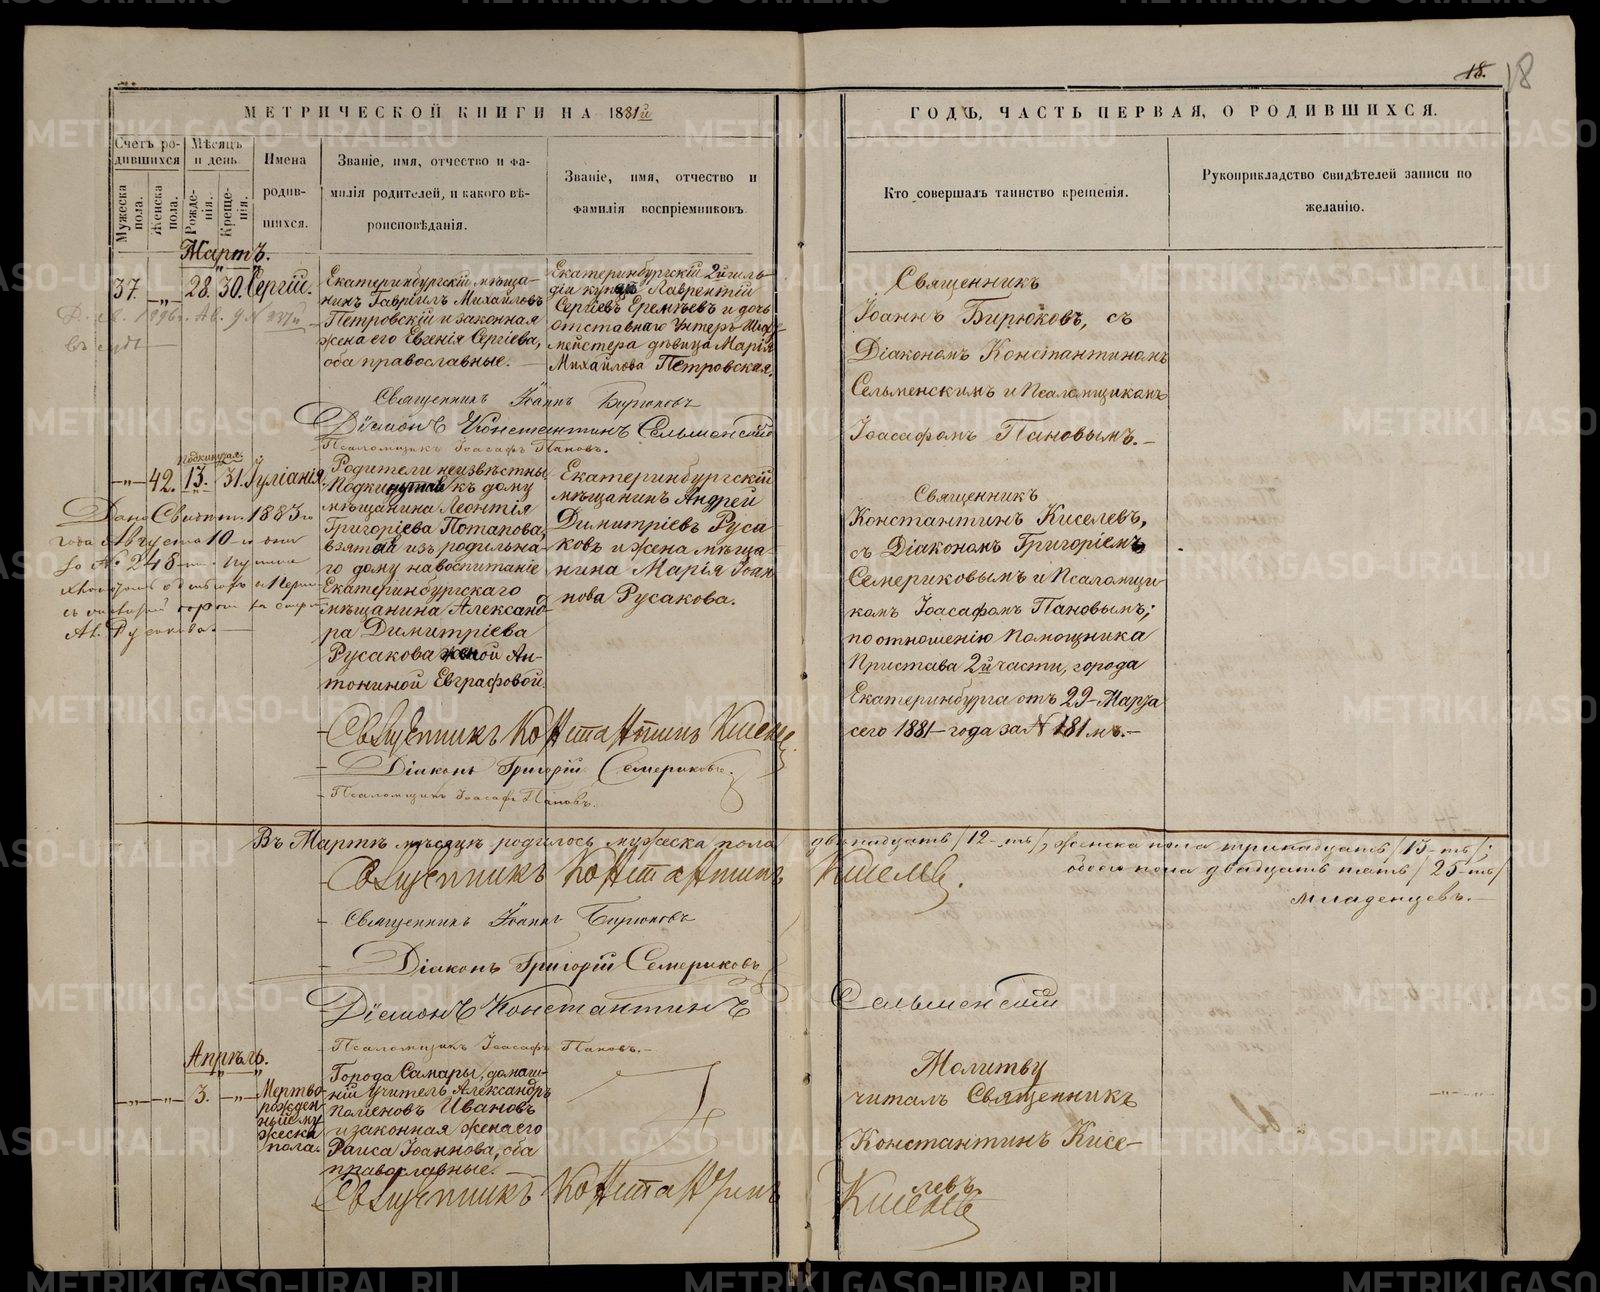 18.
18
МЕТРИЧЕСКОЙ КНИГИ НА 1881й
ГОДЪ, ЧАСТЬ ПЕРВАЯ, О РОДИВШИХСЯ.
Счетъ ро-
дившихся
Мужеска
пола.
Женска
пола.
Мѣсяцъ
и день
Рожде-
нія.
Креще-
нія.
Имена
родив-
шихся.
Званіе, имя, отчество и фа-
милія родителей, и какого вѣ-
роисповѣданія.
Званіе, имя, отчество и
фамилія воспріемниковъ
Кто совершалъ таинство крещенія.
Рукоприкладство свидѣтелей записи по
желанію.
Мартъ.
37.
-„-
28.
30.
Сергій.
Екатеринбургскій мѣща-
нинъ Гавріилъ Михайловъ
Петровскій и законная
жена его Евгенія Сергіева,
оба православные.
Екатеринбургскій 2й гиль-
діи купецъ Лаврентій
Сергіевъ Еремѣевъ и дочь
отставнаго Унтеръ-Шихт-
мейстера дѣвица Марія
Михайлова Петровская.
Священникъ
Іоаннъ Бирюковъ, съ
Діакономъ Константиномъ
Сельменскимъ и Псаломщикомъ
Іоасафомъ Пановымъ.-
Священникъ Іоаннъ Бирюковъ
Діаконъ Константинъ Сельменскій
Псаломщикъ Іоасафъ Пановъ.
-„-
42.
Подкинутая.
13.
31.
Іуліанія.
Родители неизвѣстны
Подкинутая къ дому
мѣщанина Леонтія
Григоріева Потапова,
взятой изъ родильна-
го дому на воспитаніе
Екатеринбургскаго
мѣщанина Александ-
ра Димитріева
Русакова женой Ан-
тониной Евграфовой.
Екатеринбургскій
мѣщанинъ Андрей
Димитріевъ Руса
ковъ и жена мѣща-
нина Марія Іоан
нова Русакова.
Священникъ
Константинъ Киселевъ,
съ Діакономъ Григоріемъ
Семериковымъ и Псаломщи-
комъ Іоасафомъ Пановымъ;
по отношенію Помощника
Пристава 2й части, города
Екатеринбурга отъ 29 Марта
сего 1881 года за № 181мъ.-
Дано Свидѣт. 1883го
года Августа 10
№ 248
Ал. Русакова.
Священникъ Константинъ Киселевъ
Діаконъ Григорій Семериковъ.
Псаломщикъ Іоасафъ Пановъ.
Въ Мартѣ мѣсяцѣ родилось мужеска пола двѣнадцать /12-ть/, женска пола тринадцать /13-ть/;
обоего пола двадцать пять /25-ть/
младенцевъ.-
Священникъ Константинъ Киселевъ.
Священникъ Іоаннъ Бирюковъ
Діаконъ Григорій Семериковъ
Діаконъ Константинъ Сельменскій
Псаломщикъ Іоасафъ Пановъ.-
Апрѣль.
-„-
-„-
3.
-„-
Мертво-
рожден-
ный му
жеска
пола.
Города Самары, домаш-
ній учитель Александръ
Ивановъ
и законная жена его
Раиса Іоаннова, оба
православные.
Молитву
читалъ Священникъ
Константинъ Кисе-
левъ.
Священникъ Константинъ Киселевъ
METRIKI.GASO-URAL.RU